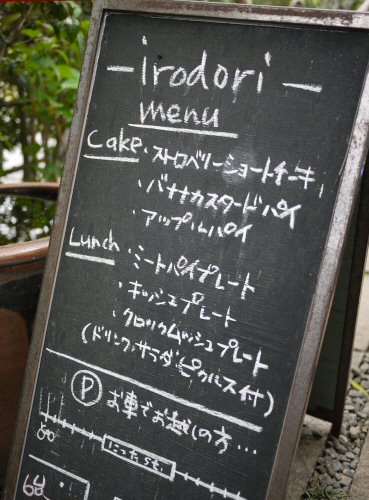 - irodori -
menu
Cake・ストロベリーショートチーキ
・バナナカスタードパイ
・アップルパイ
Lunch・ミートパイプレート
・キッシュプレート
・クロックムッシュプレート
(ドリンク、サラダ、ピクルス付)
Ⓟ お車でお越しの方…